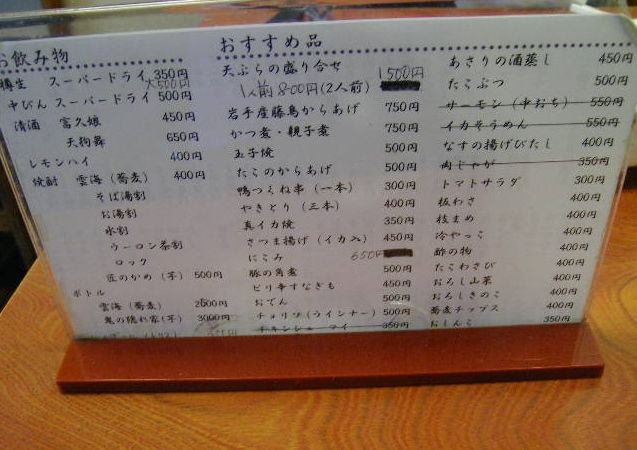 お飲み物
樽生 スーパードライ 350円
大500円
中びん スーパードライ 500円
清酒 富久娘 450円
天狗舞 650円
レモンハイ 400円
焼酎 雲海(蕎麦) 400円
そば湯割
お湯割
水割
ウーロン茶割
ロック
匠のかめ(芋) 500円
ボトル
雲海(蕎麦) 2600円
鬼の隠れ家(芋) 3000円
おすすめ品
天ぷらの盛り合せ 1500円
1人前 800円(2人前)
岩手産藤鳥からあげ 750円
かつ煮・親子煮 750円
玉子焼 500円
たこのからあげ 500円
鴨つくね串(一本) 300円
やきとり(三本) 400円
真イカ焼 350円
さつま揚げ(イカ入) 450円
にこみ 650円
豚の角煮 500円
ピリ辛すなぎも 450円
おでん 500円
チョリソ(ウインナー) 500円
チキンシューマイ 350円
あさりの酒蒸し 450円
たこぶつ 500円
サーモン(中おち) 550円
イカそうめん 550円
なすの揚げびたし 400円
肉じゃが 350円
トマトサラダ 300円
板わさ 400円
枝まめ 400円
冷やっこ 400円
酢の物 400円
たこわさび 400円
おろし山菜 400円
おろしきのこ 400円
蕎麦チップス 400円
おしんこ 350円